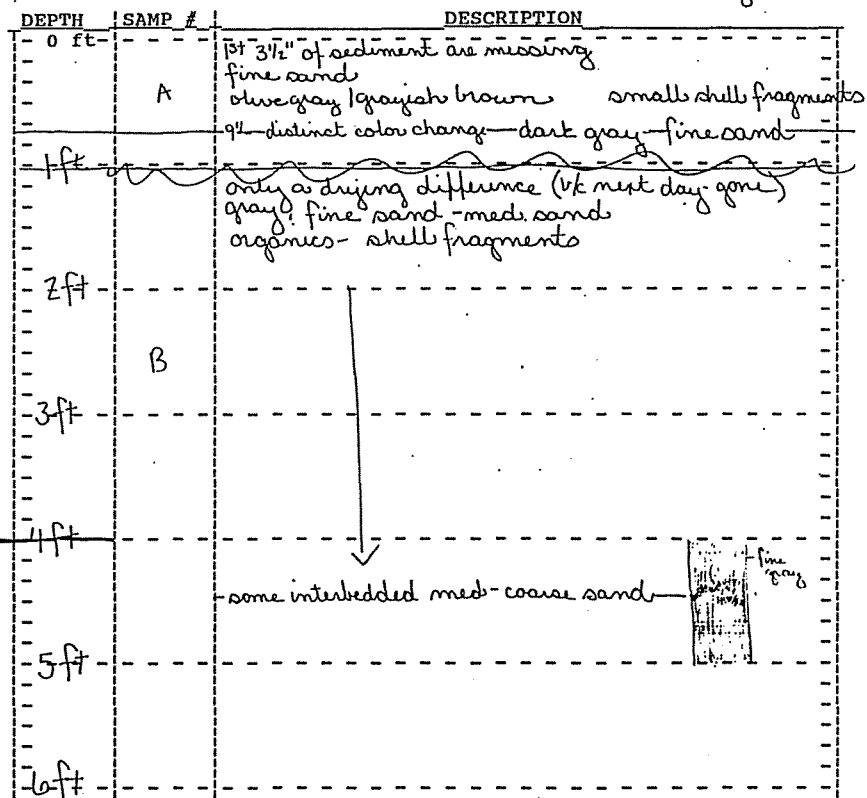 DEPTH SAMP # DESCRIPTION
0 ft
1st 3 1/2" of sediment are missing
fine sand
A olive gray / grayish brown small shell fragments
9" distinct color change dark gray fine sand
1 ft
only a drying difference (b/c next day gone)
gray, fine sand - med. sand
organics - shell fragments
2 ft
B
3 ft
4 ft
fine
gray
some interbedded med-coarse sand
5 ft
6 ft